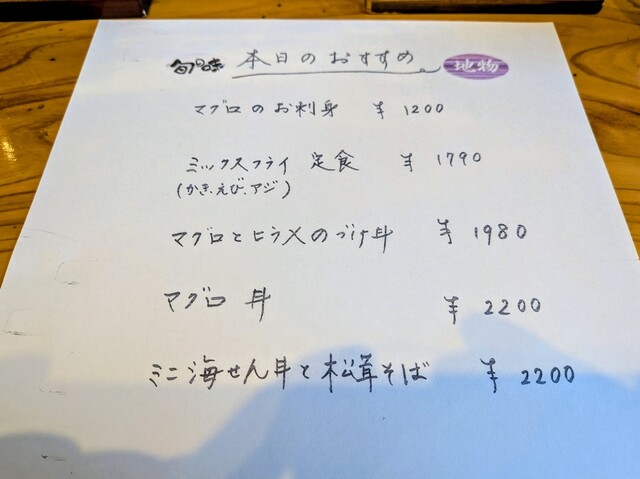 旬味 本日のおすすめ 地物
マグロのお刺身 ¥1200
ミックスフライ 定食 ¥1790
(かき、えび、アジ)
マグロとヒラメのづけ丼 ¥1980
マグロ丼 ¥2200
ミニ海せん丼と松茸そば ¥2200